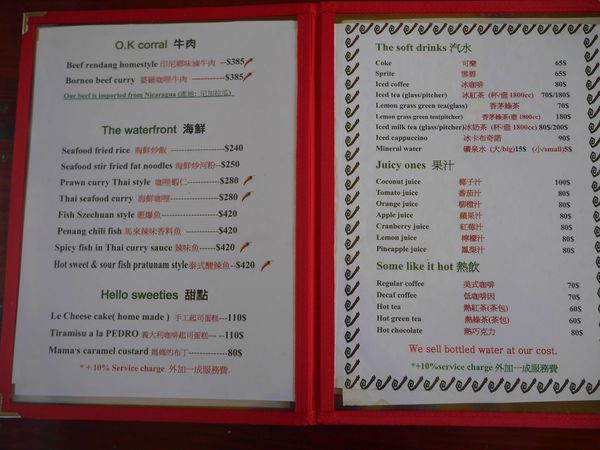 O.K corral 牛肉
Beef rendang homestyle 印尼鄉味滷牛肉 --$385
Borneo beef curry 婆羅咖哩牛肉 -----------$385
Our beef is imported from Nicaragua (產地: 尼加拉瓜)
The waterfront 海鮮
Seafood fried rice 海鮮炒飯 ---------$240
Seafood stir fried fat noodles 海鮮炒河粉--$250
Prawn curry Thai style 咖哩蝦仁------$280
Thai seafood curry 海鮮咖哩---------$280
Fish Szechuan style 蔥爆魚------$420
Penang chili fish 馬來辣味香料魚 ------$420
Spicy fish in Thai curry sauce 辣味魚----$420
Hot sweet & sour fish pratunam style 泰式酸辣魚--$420
Hello sweeties 甜點
Le Cheese cake( home made ) 手工起司蛋糕---110$
Tiramisu a la PEDRO 義大利咖啡起司蛋糕--- --110$
Mama's caramel custard 媽媽的布丁-------------80$
* + 10% Service charge 外加一成服務費.
The soft drinks 汽水
Coke 可樂 65$
Sprite 雪碧 65$
Iced coffee 冰咖啡 80$
Iced tea (glass/pitcher) 冰紅茶 (杯/壺 1800cc) 70$/180$
Lemon grass green tea(glass) 香茅綠茶 70$
Lemon grass green tea(pitcher) 香茅綠茶(壺 1800cc) 180$
Iced milk tea (glass/pitcher)冰奶茶 (杯/壺 1800cc) 80$/200$
Iced cappuccino 冰卡布奇諾 90$
Mineral water 礦泉水 (大/big)15$ (小/small)5$
Juicy ones 果汁
Coconut juice 椰子汁 100$
Tomato juice 番茄汁 80$
Orange juice 柳橙汁 80$
Apple juice 蘋果汁 80$
Cranberry juice 紅莓汁 80$
Lemon juice 檸檬汁 80$
Pineapple juice 鳳梨汁 80$
Some like it hot 熱飲
Regular coffee 美式咖啡 70$
Decaf coffee 低咖啡因 70$
Hot tea 熱紅茶(茶包) 60$
Hot green tea 熱綠茶(茶包) 60$
Hot chocolate 熱巧克力 80$
We sell bottled water at our cost.
*+10%service charge 外加一成服務費